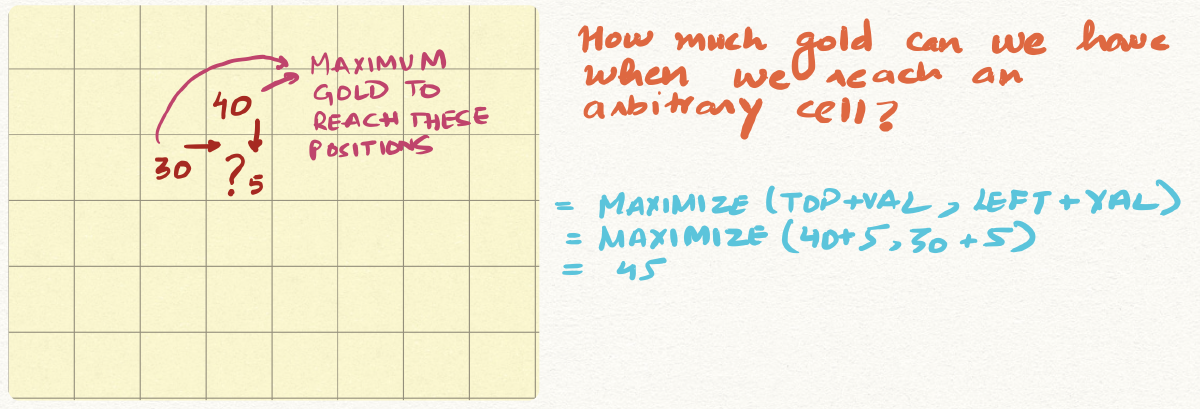 MAXIMUM
GOLD TO
REACH THESE
POSITIONS
40
30
?
5
How much gold can we have
when we reach an
arbitrary cell?
= MAXIMIZE (TOP+VAL, LEFT+VAL)
= MAXIMIZE (40+5, 30+5)
= 45